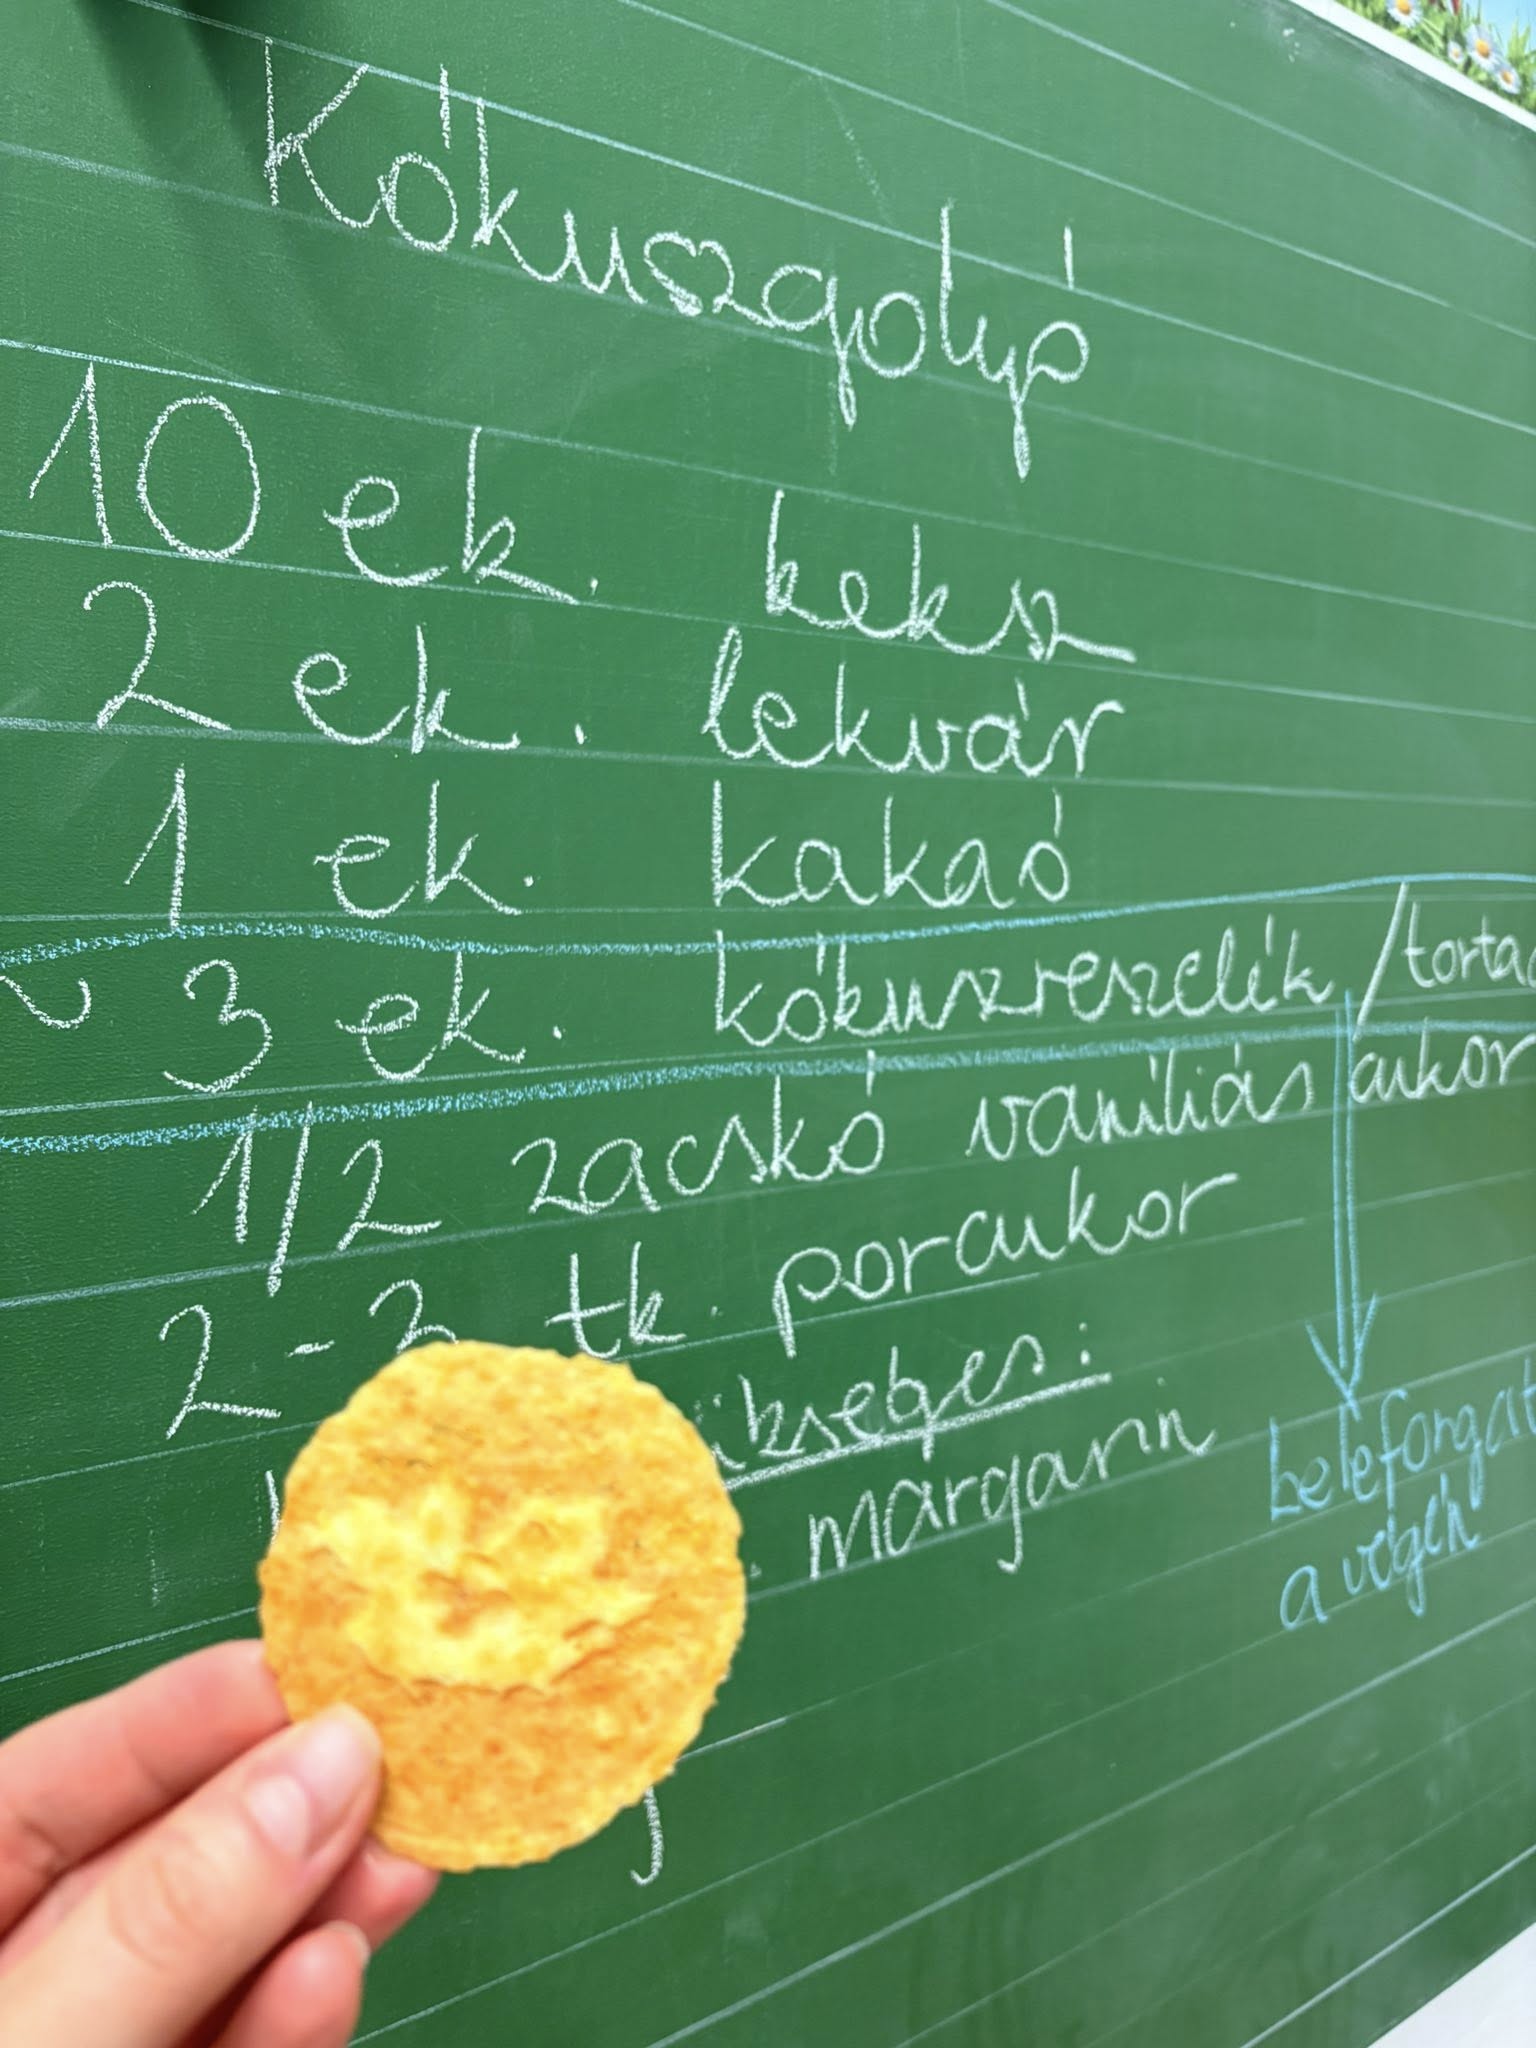 Kókuszgolyó
10 ek. keksz
2 ek. lekvár
1 ek. kakaó
~ 3 ek. kókuszreszelék / torta
1/2 zacskó vaníliás cukor
2-3 tk. porcukor
margarin
beleforgat
a végén